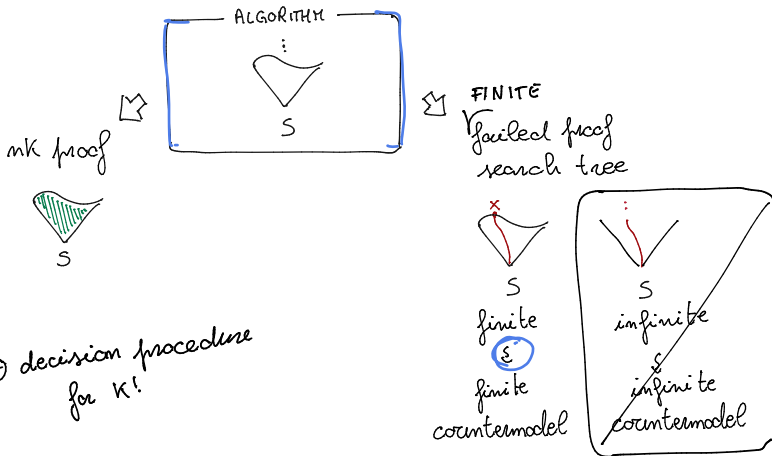 ALGORITHM
⋮
S
nk proof
S
FINITE
failed proof
search tree
x
S
finite
finite
countermodel
⋮
S
infinite
infinite
countermodel
decision procedure
for K!